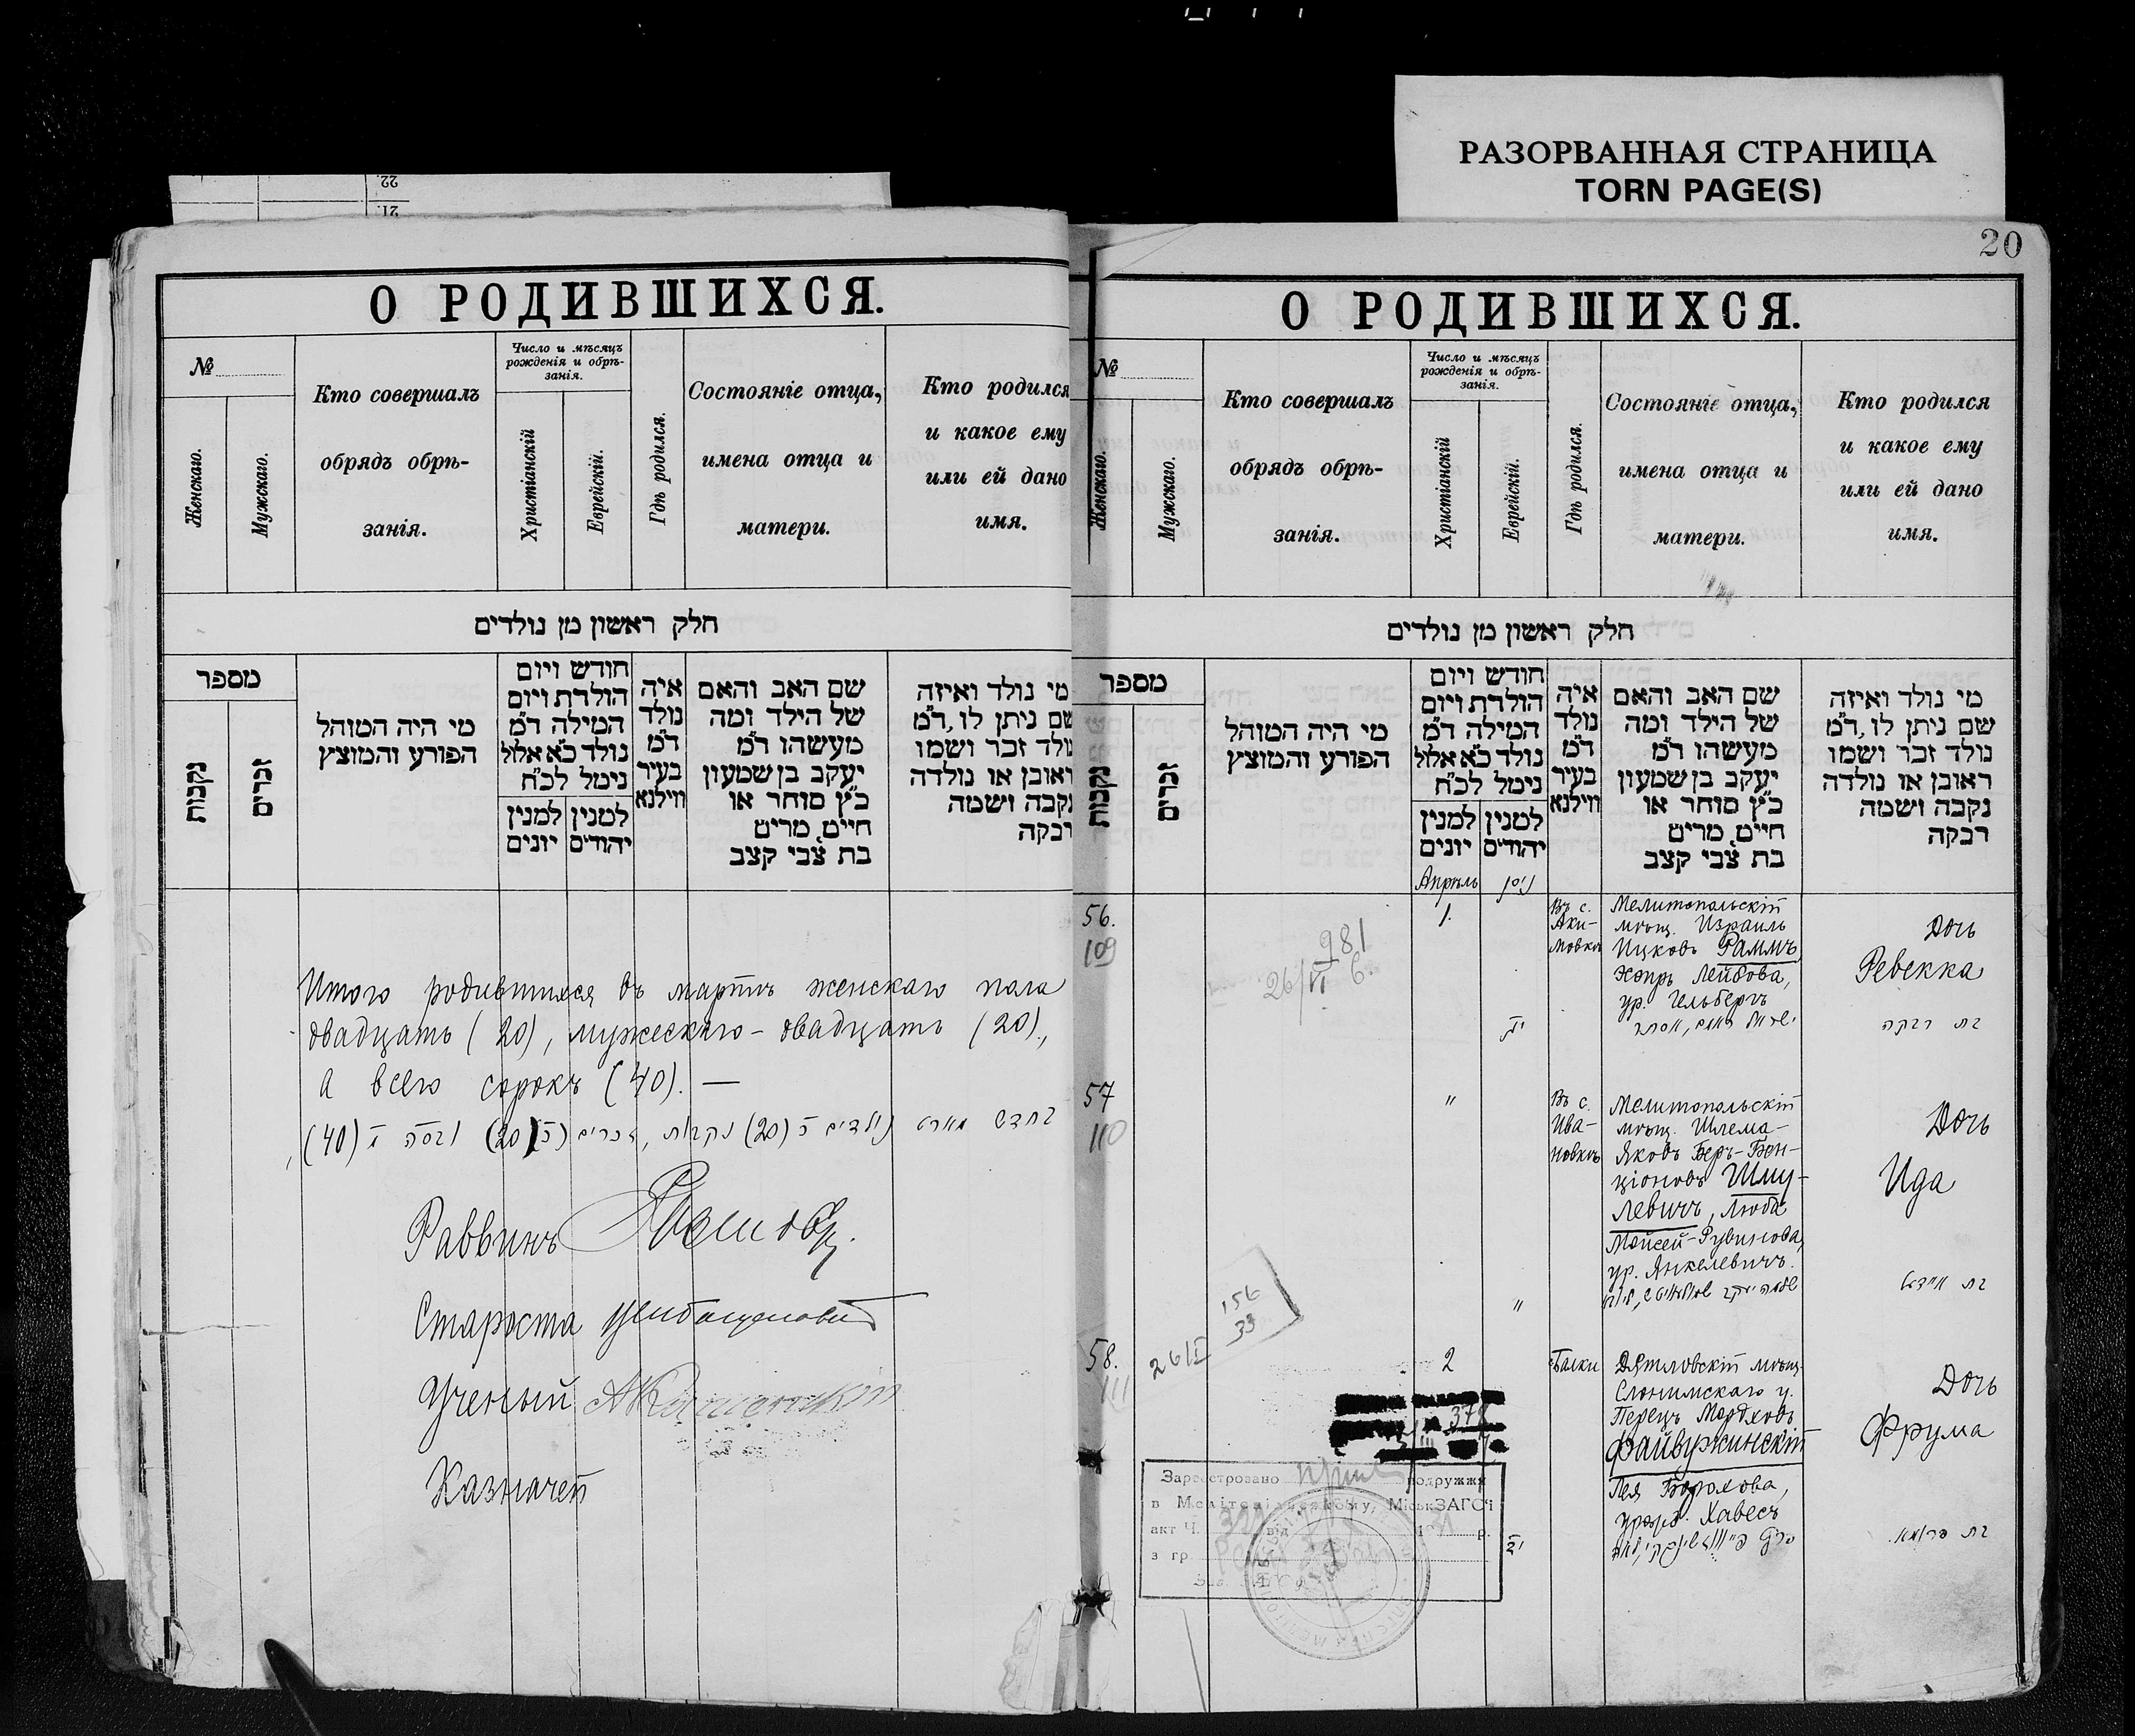 РАЗОРВАННАЯ СТРАНИЦА
TORN PAGE(S)
22.
21.
О РОДИВШИХСЯ.
№
Женскаго.
Мужскаго.
Кто совершалъ
обрядъ обрѣ-
занія.
Число и мѣсяцъ
рожденія и обрѣ-
занія.
Христіанскій
Еврейскій.
Гдѣ родился.
Состояніе отца,
имена отца и
матери.
Кто родился
и какое ему
или ей дано
имя.
חלק ראשון מן נולדים
מספר
נקבות
זכרים
מי היה המוהל
הפורע והמוצץ
חודש ויום
הולדת ויום
המילה ד״מ
נולד כ״א אלול
נימל לכ״ח
למנין
יונים
למנין
יהודים
איה
נולד
ד״מ
בעיר
ווילנא
שם האב והאם
של הילד ומה
מעשהו ד״מ
יעקב בן שמעון
כ״ץ סוחר או
חייט, מרים
בת צבי קצב
מי נולד ואיזה
שם ניתן לו, ד״מ
נולד זכר ושמו
ראובן או נולדה
נקבה ושמה
רבקה
Итого родившихся въ мартѣ женскаго пола
двадцать (20), мужескаго - двадцать (20).,
а всего сорокъ (40). —
בחדש מארט נולדים כ (20) נקבות, זכרים כ (20) ובסה מ (40)
Раввинъ
Староста
Ученый
Казначей
20
О РОДИВШИХСЯ.
№
Женскаго.
Мужскаго.
Кто совершалъ
обрядъ обрѣ-
занія.
Число и мѣсяцъ
рожденія и обрѣ-
занія.
Христіанскій
Еврейскій.
Гдѣ родился.
Состояніе отца,
имена отца и
матери.
Кто родился
и какое ему
или ей дано
имя.
חלק ראשון מן נולדים
מספר
נקבות
זכרים
מי היה המוהל
הפורע והמוצץ
חודש ויום
הולדת ויום
המילה ד״מ
נולד כ״א אלול
נימל לכ״ח
למנין
יונים
למנין
יהודים
איה
נולד
ד״מ
בעיר
ווילנא
שם האב והאם
של הילד ומה
מעשהו ד״מ
יעקב בן שמעון
כ״ץ סוחר או
חייט, מרים
בת צבי קצב
מי נולד ואיזה
שם ניתן לו, ד״מ
נולד זכר ושמו
ראובן או נולדה
נקבה ושמה
רבקה
Апрѣль
ניסן
56.
109
981
26/VI 6.
1.
Въ с.
Аки-
мовкѣ
Мелитопольскій
мѣщ. Израиль
Ицковъ Раммъ,
Лейбова,
ур. Гельбергъ
Дочь
Ревекка
בת רבקה
57
110
"
"
Въ с.
Ива-
новкѣ
Мелитопольскій
мѣщ. Шлема-
Яковъ Беръ-Бен-
ціоновъ Шму-
левичъ, Люба
Мойсей-Рувинова,
ур. Янкелевичъ.
Дочь
Ида
בת אידא
156
33
58.
111
2
יב
Балки
Дятловскій мѣщ.
Слонимскаго у.
Перецъ Мордховъ
Файвужинскій
Лея Борохова,
урожд. Хавесъ
Дочь
Фрума
בת פרומא
378
Зареєстровано подружжя
в Мелітопільському МіськЗАГСі
акт Ч. від р.
з гр.